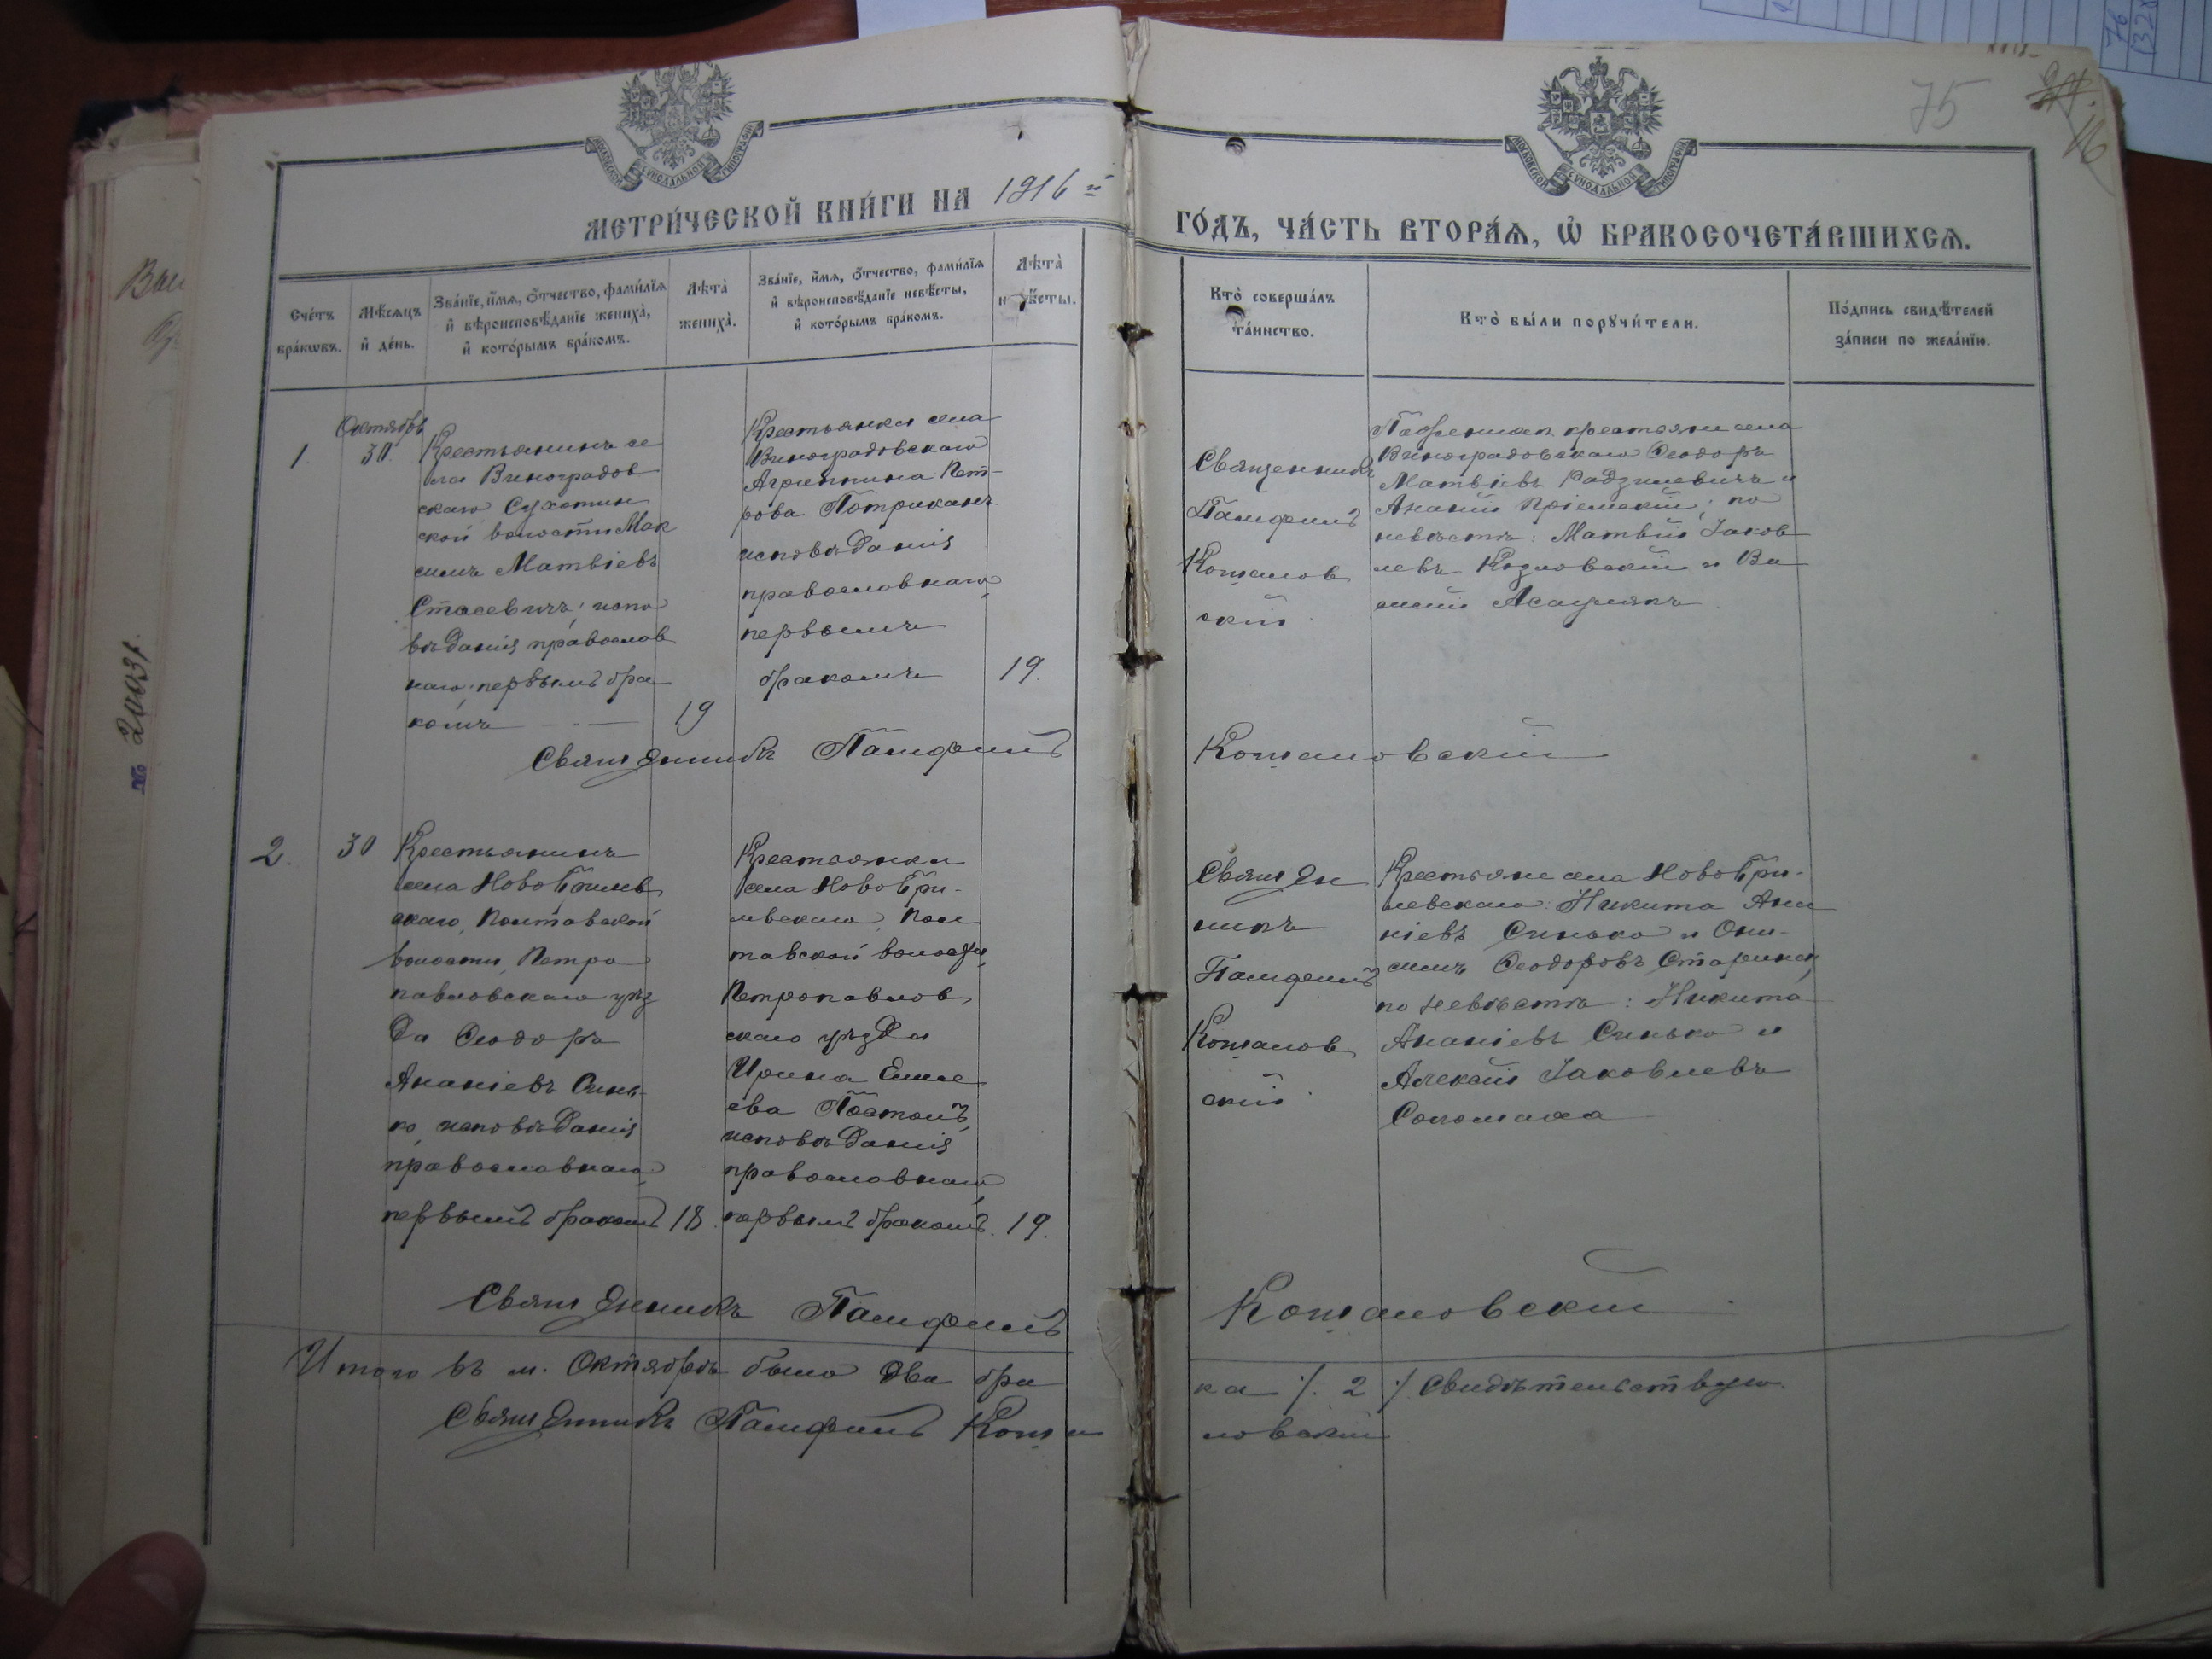 75
16
МОСКОВСКОЙ СѴНОДАЛЬНОЙ ТИПОГРАФІИ
МОСКОВСКОЙ СѴНОДАЛЬНОЙ ТИПОГРАФІИ
МЕТРИ́ЧЕСКОЙ КНИ́ГИ НА 1916 й
ГО́ДЪ, ЧА́СТЬ ВТОРА́Ѧ, Ѽ БРАКОСОЧЕТА́ВШИХСѦ.
Сче́тъ бра́кѡвъ.
Мѣ́сяцъ и де́нь.
Зва́нїе, и́мѧ, ѻ҆́тчество, фами́лїѧ и вѣроисповѣ́данїе жениха̀, и кото́рымъ бра́комъ.
Лѣта̀ жениха̀.
Зва́нїе, и́мѧ, ѻ҆́тчество, фами́лїѧ и вѣроисповѣ́данїе невѣ́сты, и кото́рымъ бра́комъ.
Лѣта̀ невѣ́сты.
Кто̀ соверша́лъ та́инство.
Кто̀ бы́ли порꙋчи́тели.
По́дпись свидѣ́телей за́писи по жела́нїю.
1.
Октябрь
30.
Крестьянинъ се
ла Виноградов
скаго Сухотин
ской волости Мак
симъ Матвіевъ
Стасевичъ; испо
вѣданія православ
наго; первымъ бра
комъ
19
Крестьянка села
Виноградовскаго
Агриппина Пет-
рова
исповѣданія
православнаго
первымъ
бракомъ
19.
Священникъ
Памфилъ
ский
крестьяни села
Виноградовскаго Ѳеодоръ
Матвіевъ Радзишевичъ и
Ананій ; по
невѣстѣ: Матвій Іаков
левъ Козловскій и Ва
силий
Священникъ Памфилъ
2.
30
Крестьянинъ
села
скаго, Полтавской
волости, Петро
павловскаго уѣз
да Ѳеодоръ
Ананіевъ Синь-
ко, исповѣданія
православнаго
первымъ бракомъ
18
Крестьянка
села
левскаго, Пол
тавской волости,
Петропавлов
скаго уѣзда
Ирина Елисе
ева
исповѣданія
православнаго
первымъ бракомъ.
19.
Священ
никъ
Памфилъ
скій
Крестьяне села
левскаго: Никита Ана
ніевъ Синько и Они-
симъ Ѳеодоровъ
по невѣстѣ: Никита
Ананіевъ Синько и
Алексій Іаковлевъ
Соломаха
Священникъ Памфилъ
Итого въ м. Октябрѣ было два бра
ка /. 2 ./ свидѣтельствую.
Священникъ Памфилъ
№ 20031.